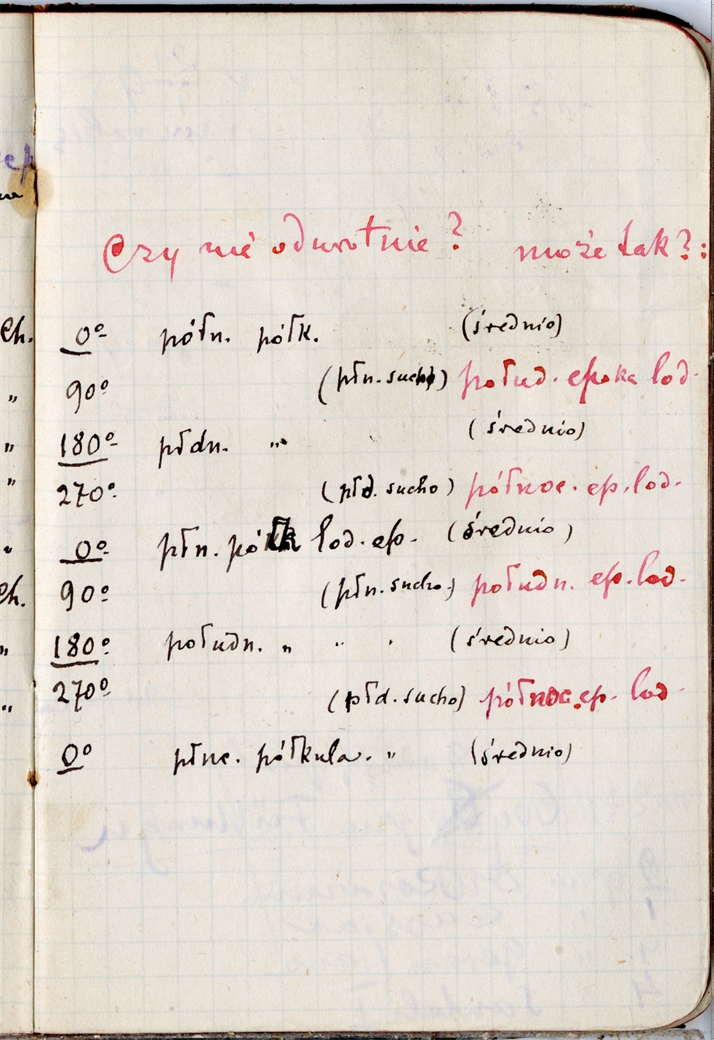 Czy nie odwrotnie? może tak?:
ch. 0° półn. półk. (średnio)
" 90° (płn. sucho) połud. epoka lod.
" 180° płdn. " (średnio)
" 270° (płd. sucho) północ. ep. lod.
" 0° płn. półk lod. ep. (średnio)
ch. 90° (płn. sucho) połudn. ep. lod.
" 180° połudn. " " " (średnio)
" 270° (płd. sucho) północ. ep. lod.
0° płnc. półkula. " (średnio)